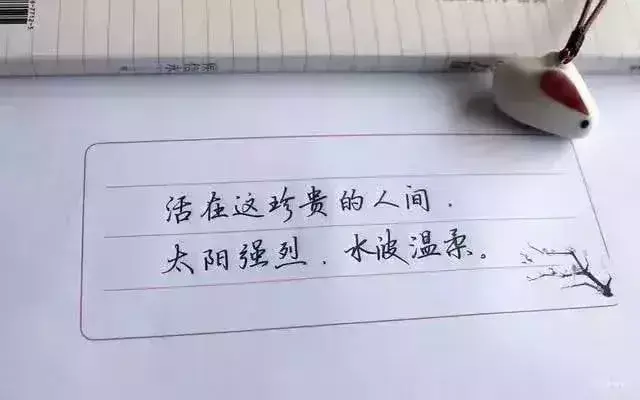 活在这珍贵的人间,
太阳强烈,水波温柔。